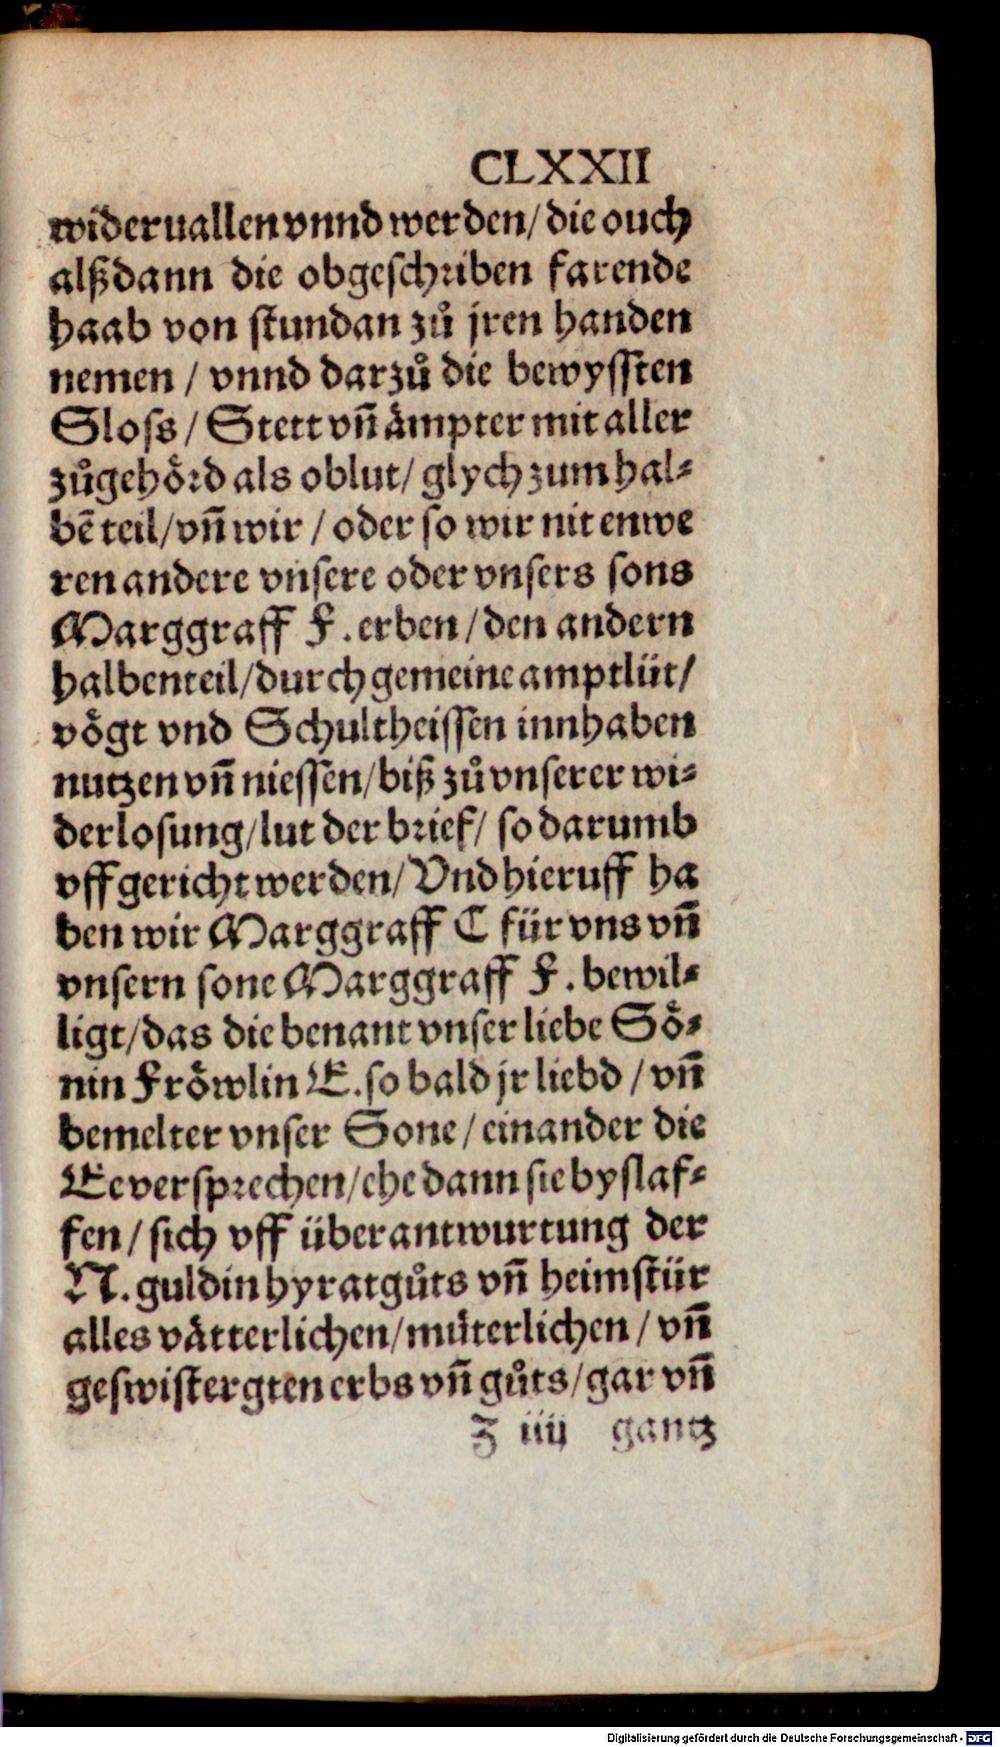 CLXXII
wideruallen vnnd werden/ die ouch
alßdann die obgeschriben farende
haab von stundan zů jren handen
nemen / vnnd darzů die bewyssten
Sloss/ Stett vñ ämpter mit aller
zůgehörd als oblut/ glych zum hal⸗
bẽ teil/vñ wir / oder so wir nit enwe
ren andere vnsere oder vnsers sons
Marggraff F. erben/ den andern
halbenteil/durch gemeine amptlüt/
vögt vnd Schultheissen innhaben
nutzen vñ niessen/biß zů vnserer wi⸗
derlosung/lut der brief/ so darumb
vffgericht werden/ Vnd hieruff ha
ben wir Marggraff C für vns vñ
vnsern sone Marggraff F. bewil⸗
ligt/das die benant vnser liebe Sö⸗
nin Fröwlin E. so bald jr liebd / vñ
bemelter vnser Sone/ einander die
Ee versprechen/ehe dann sie byslaf⸗
fen/ sich vff überantwurtung der
N. guldin hyratgůts vñ heimstür
alles vätterlichen/müterlichen/ vñ
geswistergten erbs vñ gůts/gar vñ
z iiij gantz
Digitalisierung gefördert durch die Deutsche Forschungsgemeinschaft - DFG